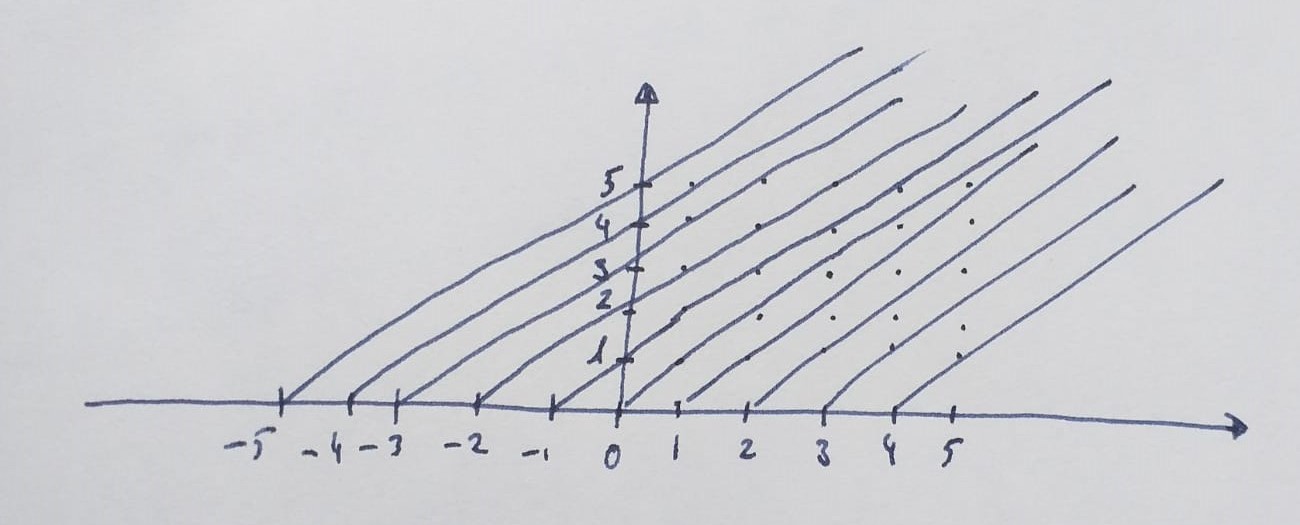 5
4
3
2
1
-5 -4 -3 -2 -1 0 1 2 3 4 5